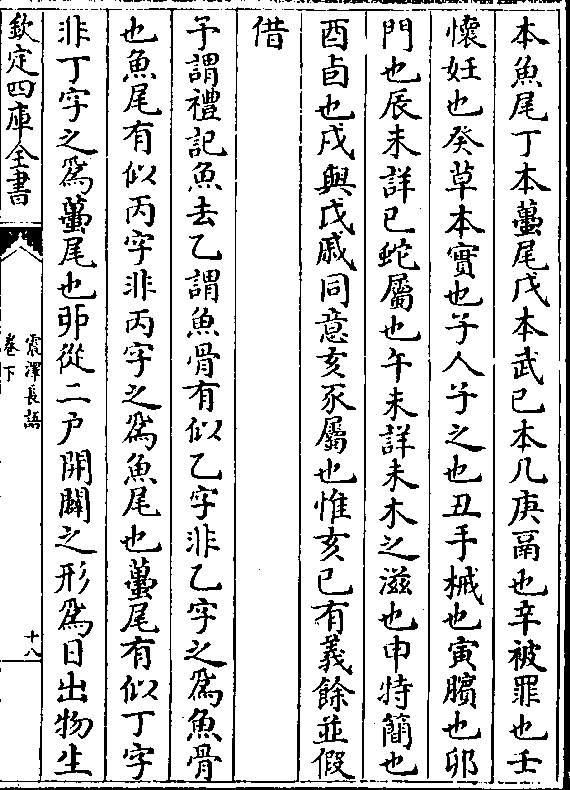 本魚尾丁本蠆尾戊本武已本几庚鬲也辛被罪也壬
懷妊也癸草本實也子人子之也丑手械也寅臏也卯
門也辰未詳已蛇屬也午未詳未木之滋也申特簡也
酉卣也戌與戊戚同意亥豕屬也惟亥已有義餘並假
借
予謂禮記魚去乙謂魚骨有似乙字非乙字之爲魚骨
也魚尾有似丙字非丙字之爲魚尾也蠆尾有似丁字
非丁字之爲蠆尾也戼從二户開闢之形爲日出物生
欽定四庫全書
震澤長語
卷下
十八